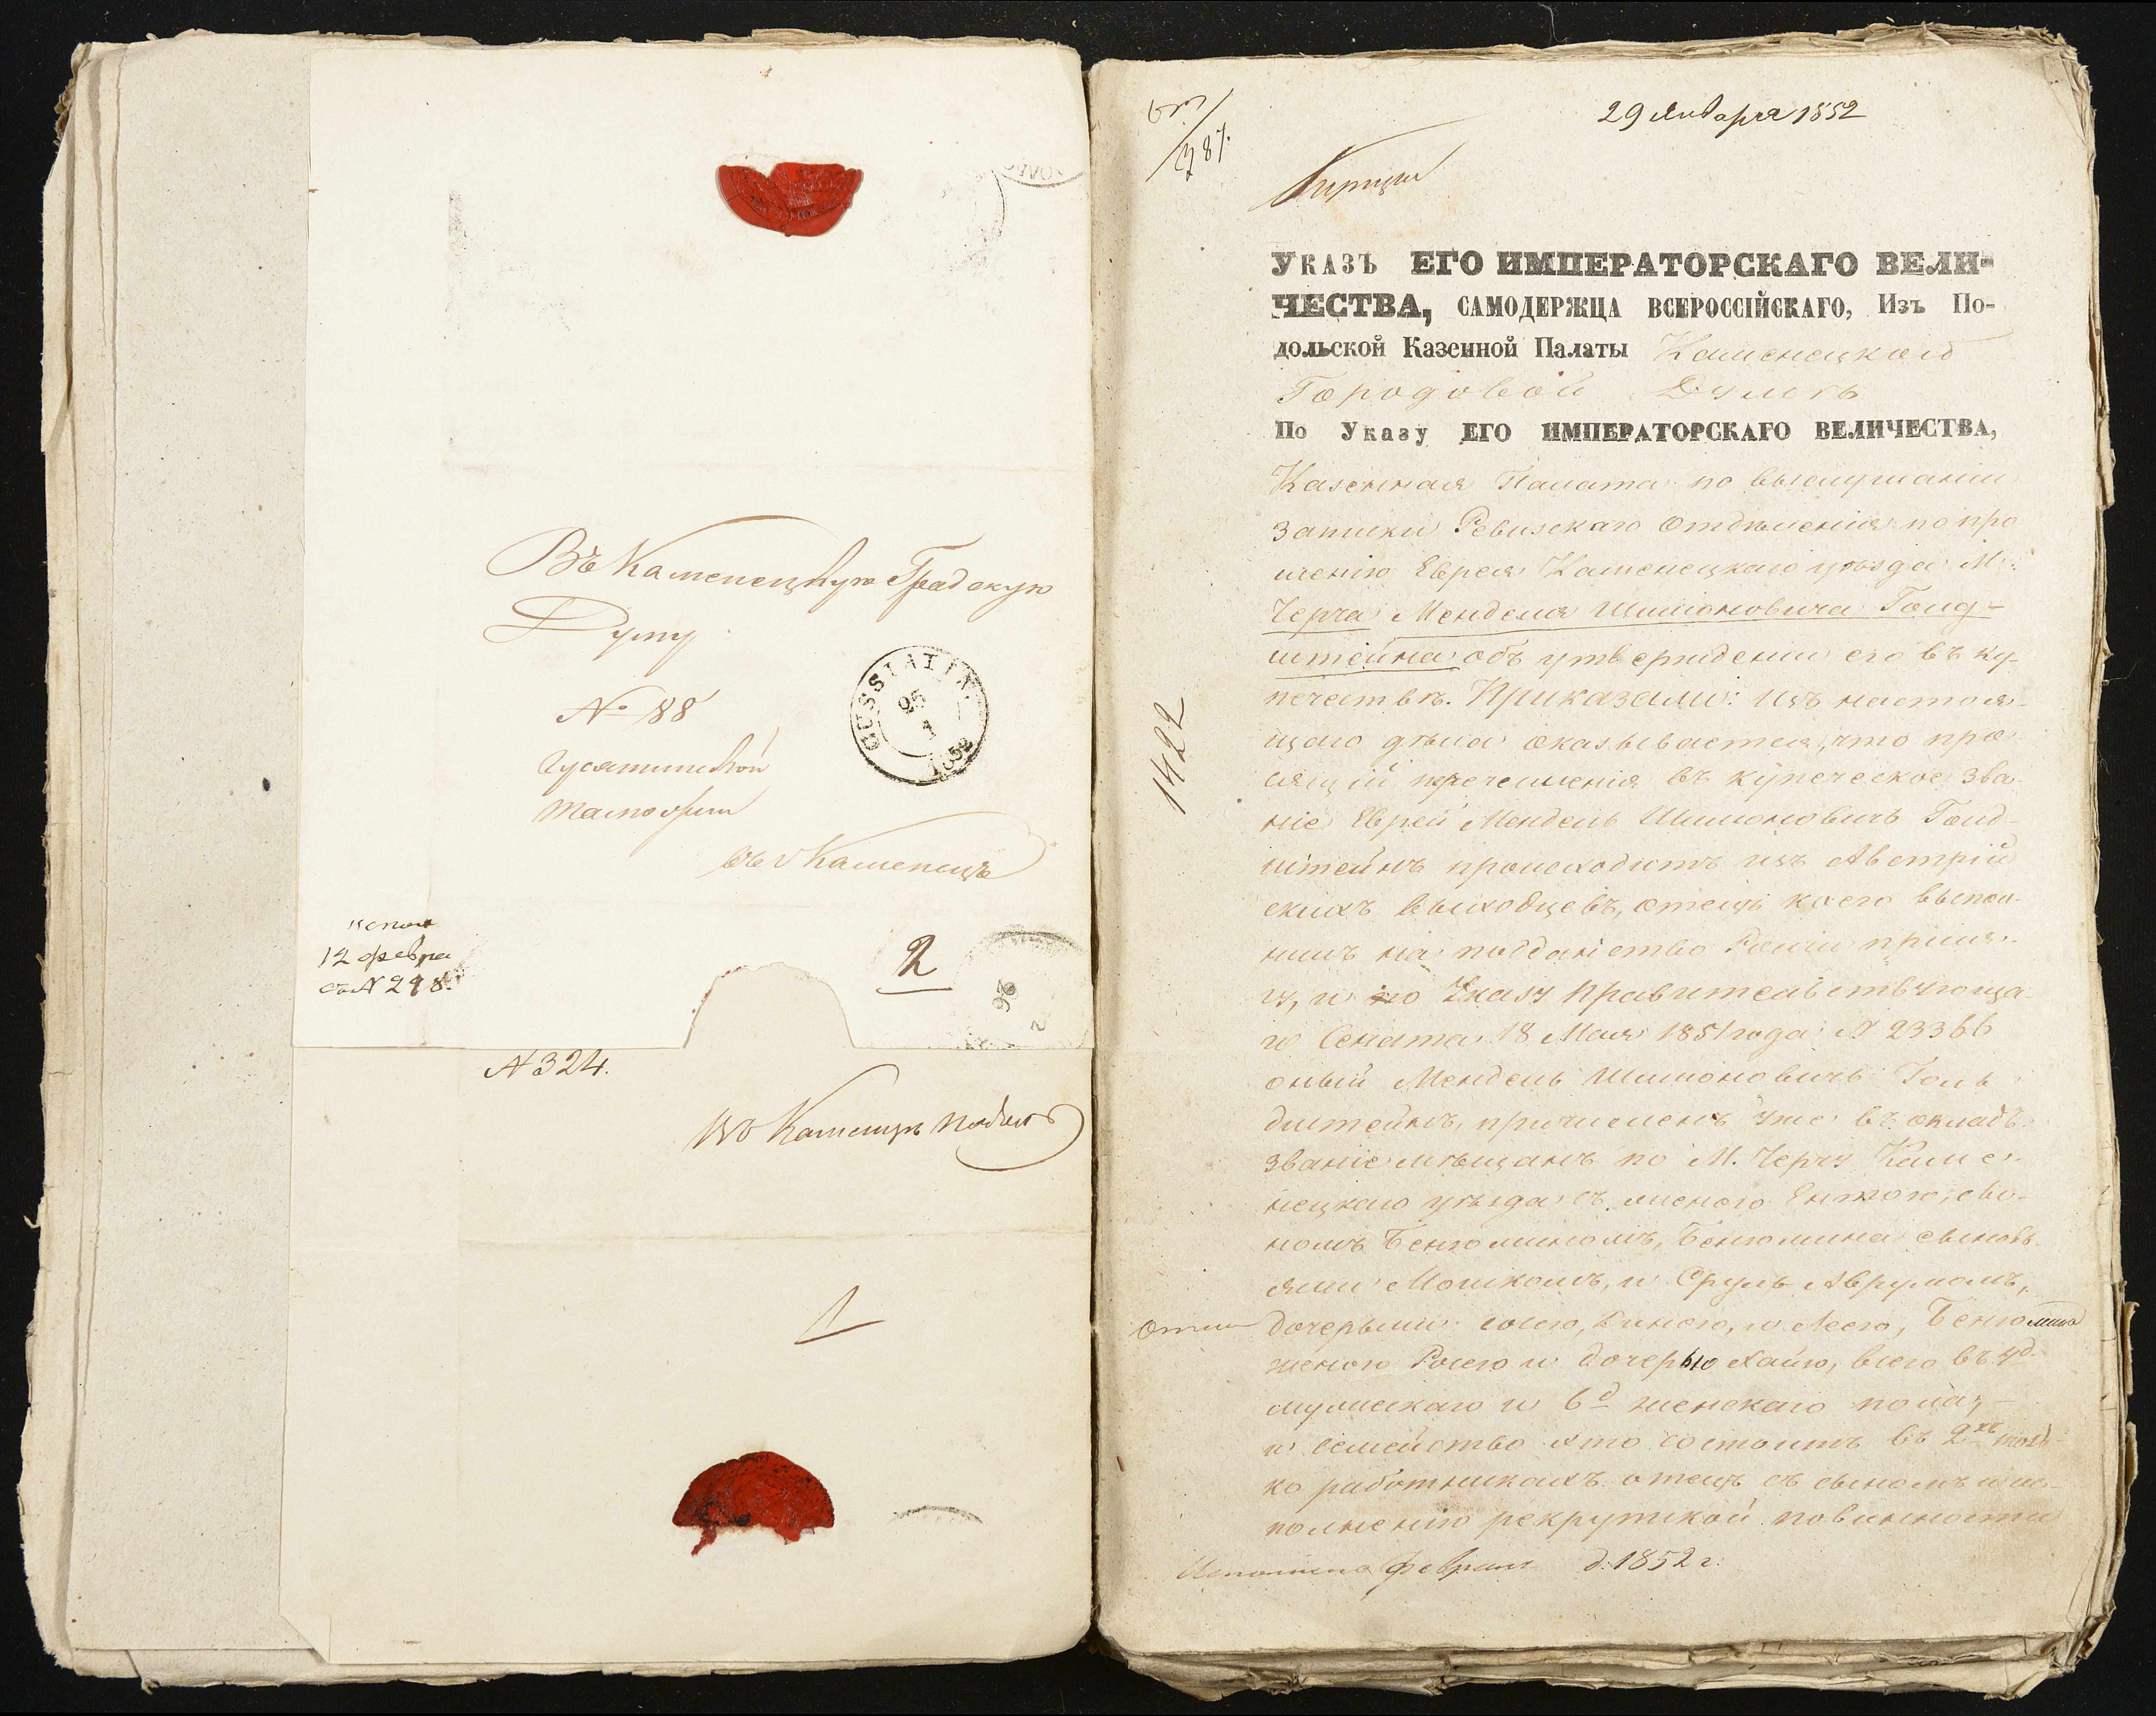 Въ Каменецкую Градскую
Думу
№ 88
Гусятинской
таможни
въ Каменецъ
GUSSIATIN
1852
испол
12 февра
съ № 298.
2
26
№ 324.
Въ Каменцъ Подол
1
29 Января 1852
387.
1422
Указъ ЕГО ИМПЕРАТОРСКАГО ВЕЛИ-
ЧЕСТВА, САМОДЕРЖЦА ВСЕРОССІЙСКАГО, Изъ По-
дольской Казенной Палаты Каменецкой
Городовой Думѣ
По Указу ЕГО ИМПЕРАТОРСКАГО ВЕЛИЧЕСТВА,
Казенная Палата по выслушаніи
записки Ревизскаго Отдѣленія по про
шенію Еврея Каменецкаго уѣзда М.
Черча Менделя Шимоновича Голд-
штейна объ утвержденіи его въ ку-
печествѣ. Приказали: изъ настоя-
щаго дѣла оказывается, что про-
сящій перечисленія въ купеческое зва-
ніе Еврей Мендель Шимоновичъ Голд-
штейнъ происходитъ изъ Австрій
скихъ выходцевъ, отецъ коего выпол-
нилъ на подданство Росіи прися-
гу, и по Указу Правительствующа-
го Сената 18 Мая 1851 года № 23366
оный Мендель Шимоновичъ Голь
дштейнъ, причисленъ уже въ окладъ
званіе мѣщанъ по М. Черчу Каме-
нецкаго уѣзда съ женою Ентою, сы-
номъ Бенюминомъ, Бенюмина сыновь
ями Мошкомъ, и Сруль Аврумомъ,
дочерьми: Росею, Диною, и Леею, Бенюмина
женою Росею и дочерью Хаію, всего въ 4 д.
мужескаго и 6 д женскаго пола,
и семейство это состоитъ въ 2хъ толь-
ко работникахъ отецъ съ сыномъ и ис-
полненію рекрутской повинности
Исполнено Февраля д. 1852 г.